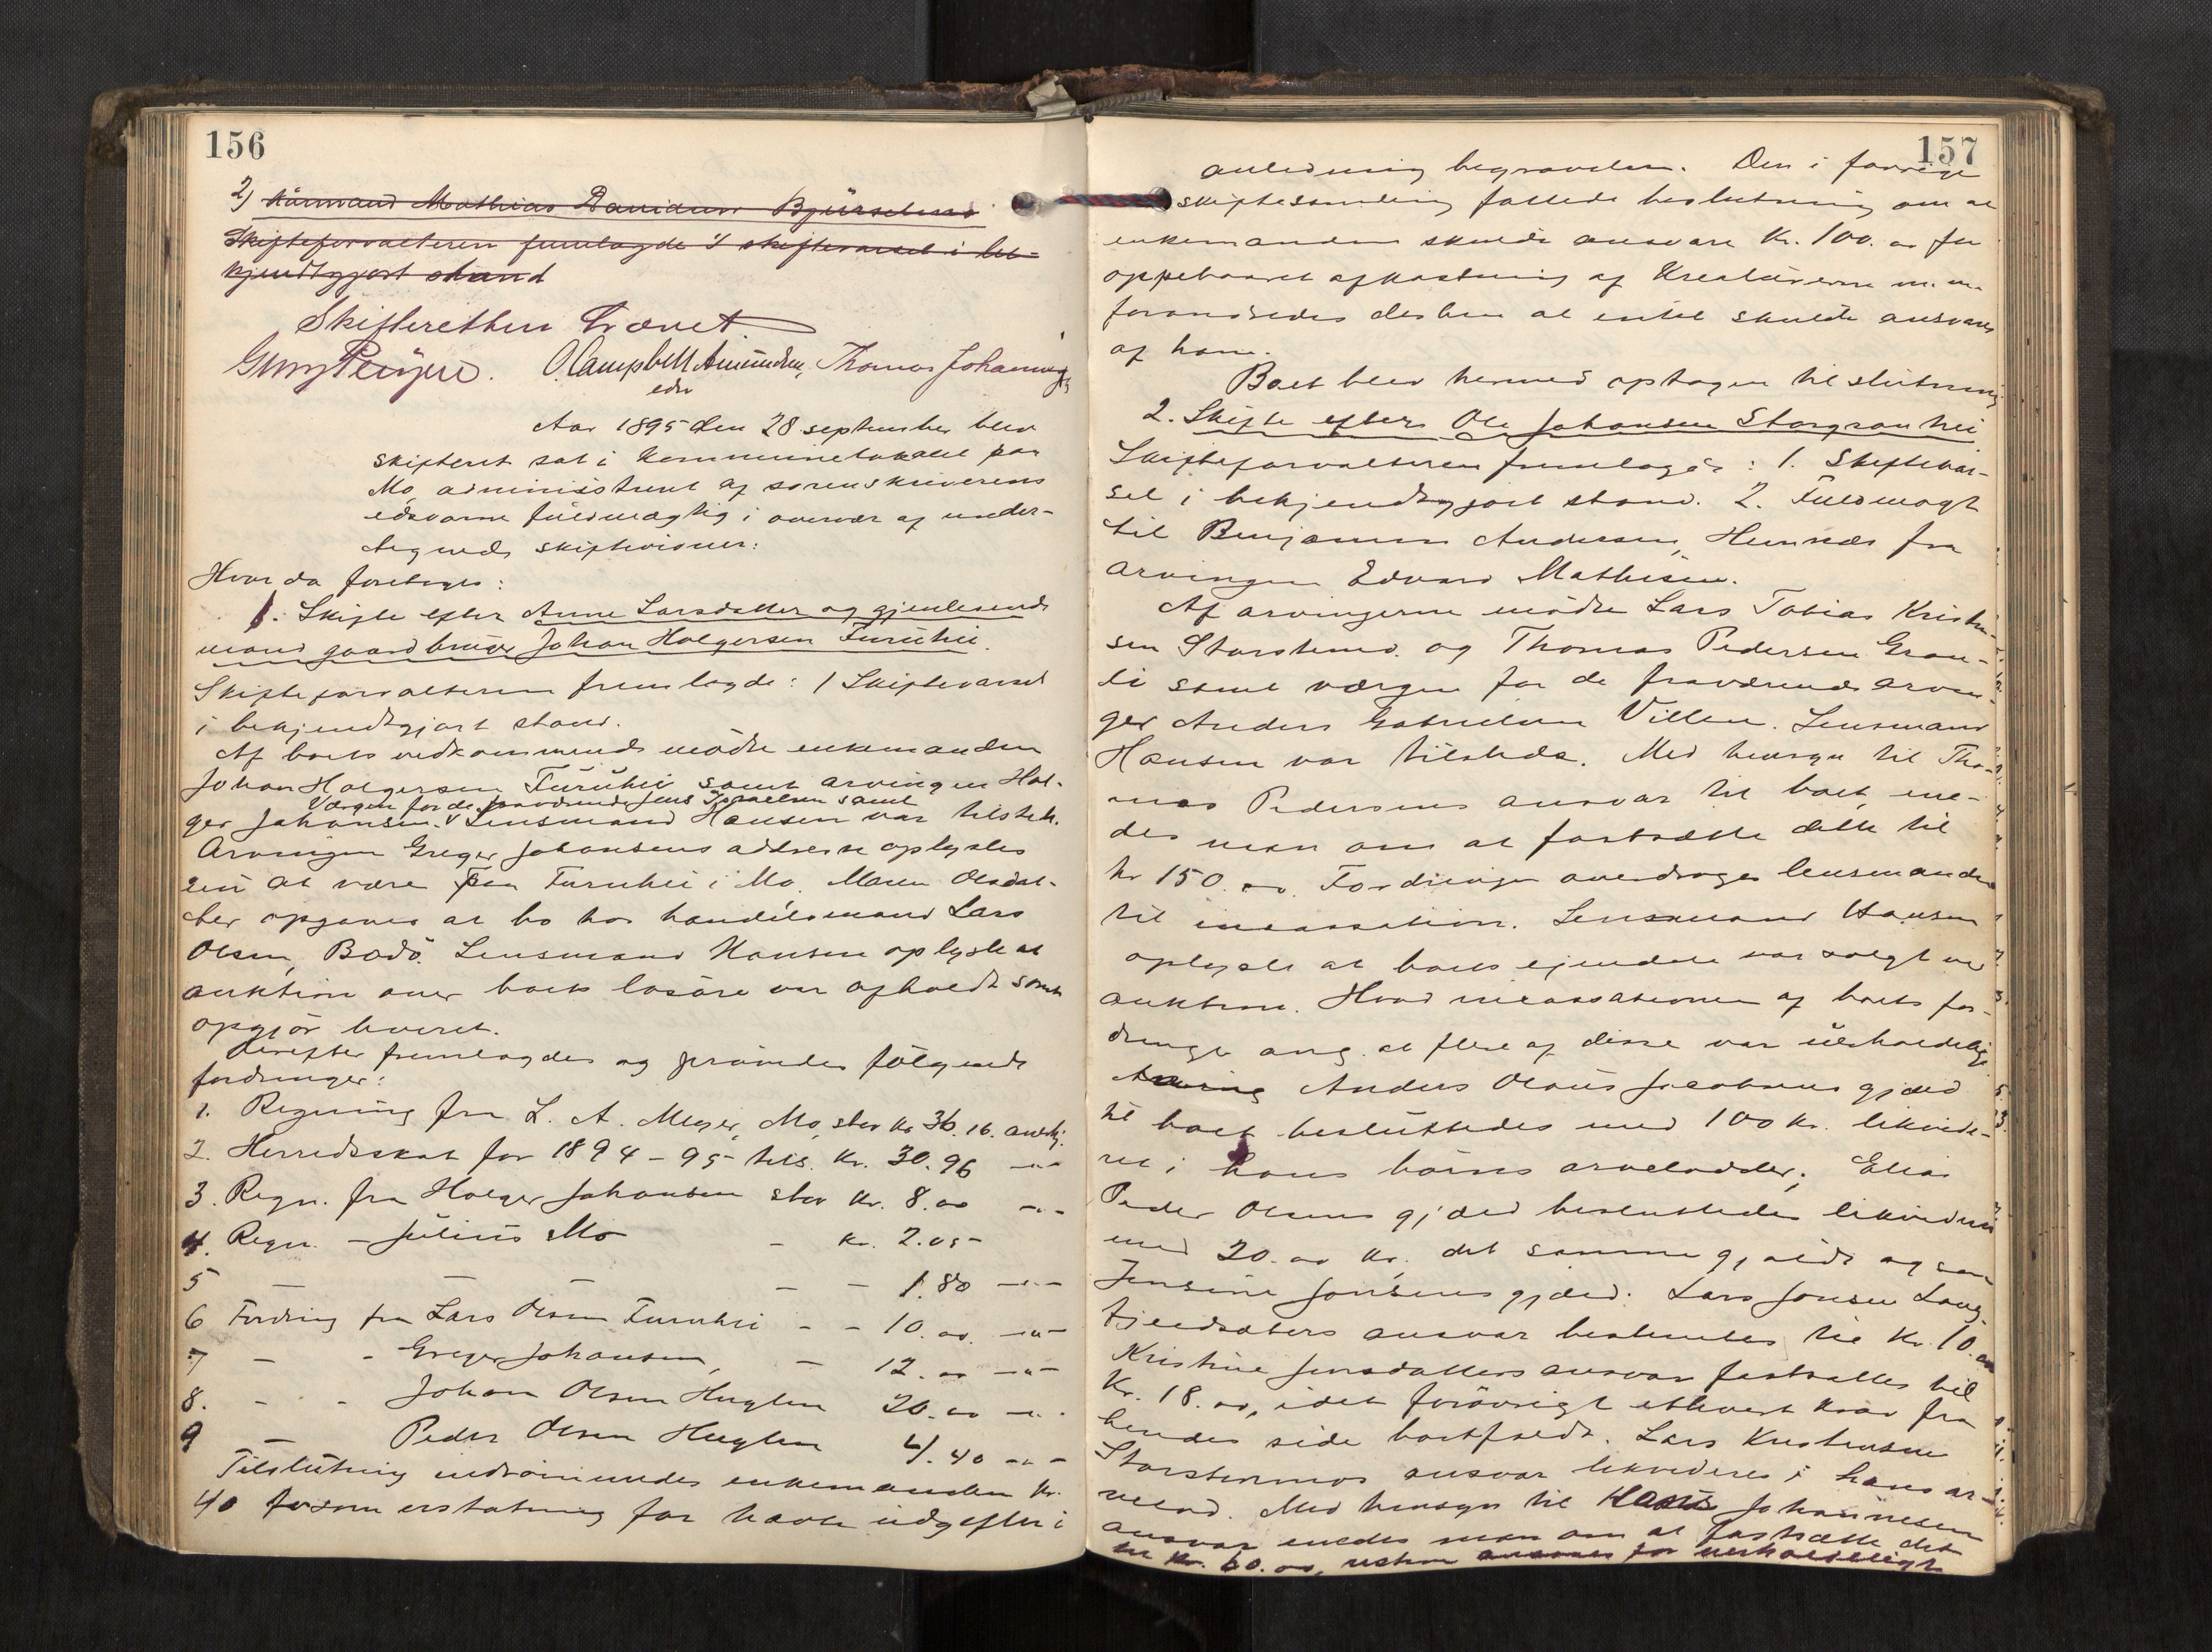 156
2) Kårmand Mathias Davidsen Bjurselmo
Skifteforvalteren fremlagde 1/ skiftevarsel i be-
kjendtgjort stand
Skifteretten hævet
O. Campbell Amundsen, Thomas Johannes
eds
Aar 1895 den 28 september blev
skifteret sat i Kommunelokalet paa
Mo, administreret af sorenskriverens
edsvorne fuldmægtig i overvær af under-
tegnede skiftevidner:
Hvor da foretoges:
1. Skifte efter Anne Larsdatter og gjenlevende
mand gaardbruger Johan Holgersen Furuhei.
Skifteforvalteren fremlagde: 1 Skiftevarsel
i bekjendtgjort stand.
Af boets vedkommende mødte enkemanden
Johan Holgersen Furuhei samt arvingen Hol-
Værgen for de fraværende Jens Israelsen samt
ger Johansen. Lensmand Hansen var tilstede.
Arvingen Greger Johansens addresse oplystes
nu at være paa Furuhei i Mo. Maren Olsdat-
ter opgaves at bo hos handelsmand Lars
Olsen, Bodø. Lensmand Hansen oplyste at
auktion over boets løsøre var afholdt samt
opgjør leveret.
Derefter fremlagdes og prøvedes følgende
fordringer:
1. Regning fra L. A. Meyer, Mo, stor kr 36.16. anerkj.
2. Herredsskat for 1894-95 tils. kr. 30.96 -"-
3. Regn. fra Holger Johansen stor kr. 8.00 -"-
4. Regn. - Julius Mo - kr. 2.05-
5 - - - - - 1.80 -"-
6 Fordring fra Lars Olsen Furuhei - - 10.00. -"-
7 - - Greger Johansen, - 12.00 -"-
8. - - Johan Olsen Huglen 20.00 -"-
9 - Peder Olsen Huglen 4.40 -"-
Tilslutning indrømmedes enkemanden kr.
40 som erstatning for havte udgifter i
157
anledning begravelsen. Den i forrige
skiftesamling fattede beslutning om at
enkemanden skulde ansvare Kr. 100.00 for
oppebaaret afkastning af Kreaturerne m.m.
forandredes derhen at intet skulde ansvares
af ham.
Boet blev hermed optagen til slutning
2. Skifte efter Ole Johansen Storgranhei
Skifteforvalteren fremlagde: 1. Skiftevar-
sel i bekjendtgjort stand. 2. Fuldmagt
til Benjamin Andersen, Hemnes fra
arvingen Edvard Mathisen.
Af arvingerne mødte Lars Tobias Kristen-
sen Storstenmo. og Thomas Pedersen Gran-
li samt værgen for de fraværende arvin-
ger Anders Gabrielsen Villen. Lensmand
Hansen var tilstede. Med hensyn til Tho-
mas Pedersens ansvar til boet, ene-
des man om at fastsætte dette til
kr 150.00. Fordringen overdroges lensmanden
til incassation. Lensmand Hansen
oplyste at boets ejendele var solgt ved
auktion. Hvad incassationen af boets for-
dringe ang. at flere af disse var uerholdelige
Anders Olaus Jacobsens gjæld
til boet besluttedes med 100 kr. likvide-
ret i hans børns arvelodder; Elias
Peder Olsens gjæld besluttedes likvideret
med 20.00 kr. det samme gjaldt ogsaa
Jensine Jonsens gjæld. Lars Jonsen Lang-
fjeldsæters ansvar bestemtes til Kr. 10.00
Kristine Jensdatters ansvar fastsattes til
Kr. 18.00, idet forøvrigt ethvert krav fra
hendes side bortfaldt. Lars Kristensen
Storstenmos ansvar likvideres i hans ar-
velod. Med hensyn til Johannesens
ansvar enedes man om at fastsætte det
til kr. 60.00, resten ansaaes for uerholdeligt